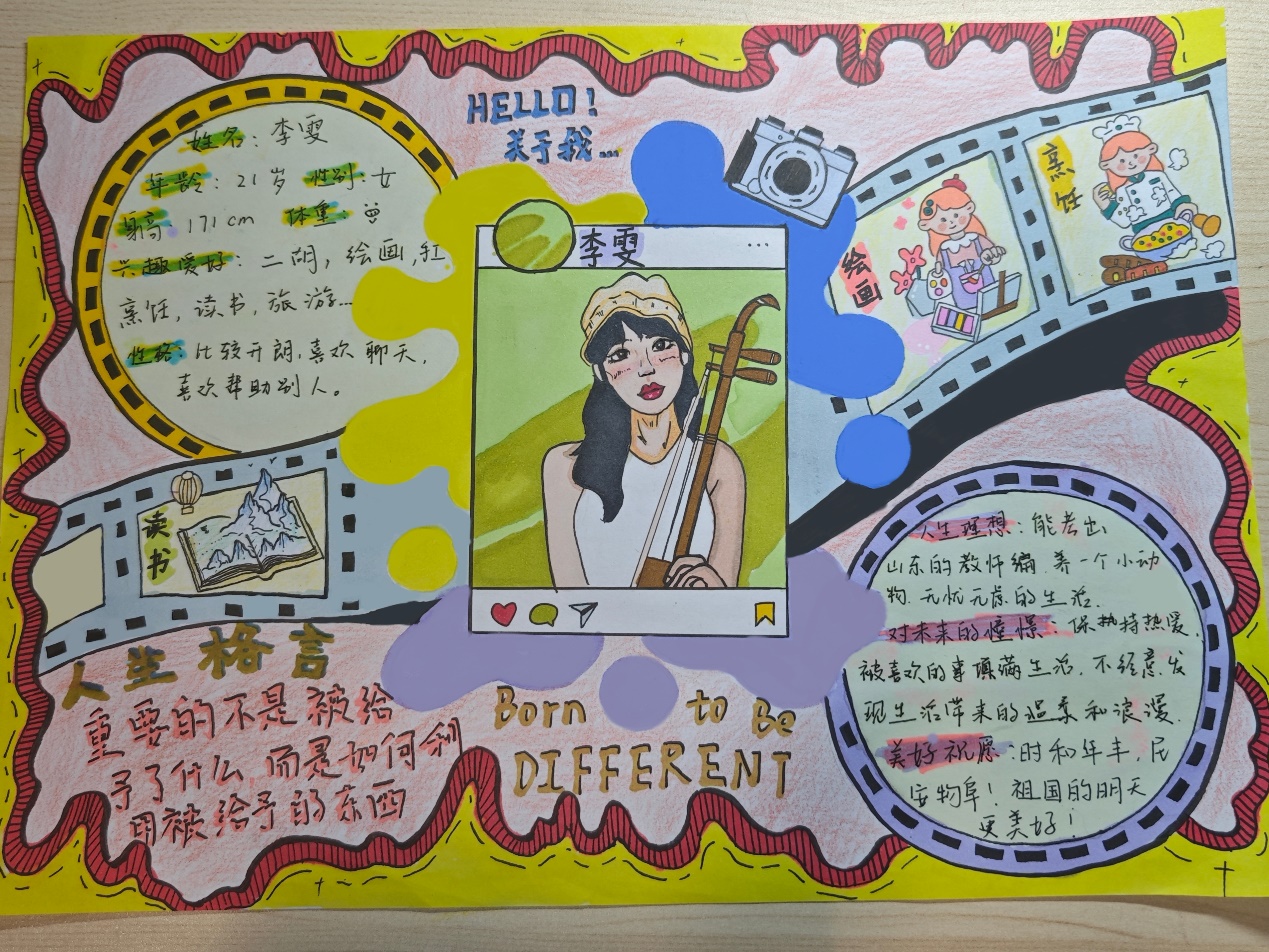 HELLO!
关于我...
姓名：李雯
年龄：21岁 性别：女
身高：171cm 体重：
兴趣爱好：二胡，绘画，
烹饪，读书，旅游...
性格：比较开朗，喜欢聊天，
喜欢帮助别人。
李雯
...
绘画
烹饪
读书
人生格言
重要的不是被给
予了什么，而是如何利
用被给予的东西
Born to Be
DIFFERENT
人生理想：能考出
山东的教师编，养一个小动
物.无忧无虑的生活.
对未来的憧憬：保持热爱.
被喜欢的事填满生活，不经意发
现生活带来的温柔和浪漫.
美好祝愿：时和年丰，民
安物阜！祖国的明天
更美好！